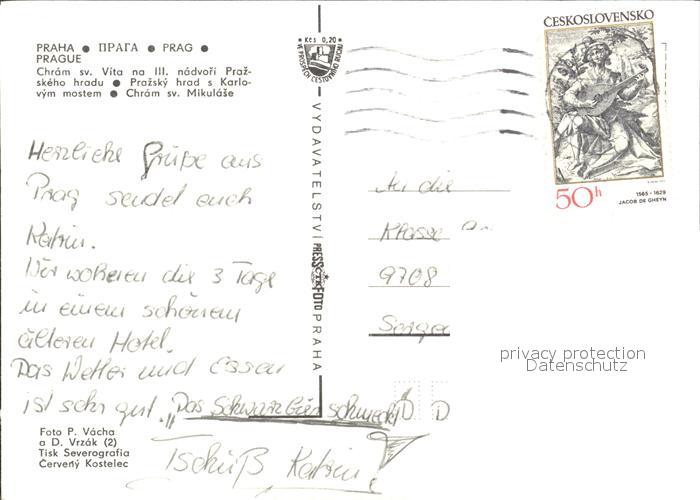 PRAHA ● ПРАГА ● PRAG ●
PRAGUE
Chrám sv. Víta na III. nádvoří Praž-
ského hradu ● Pražský hrad s Karlo-
vým mostem ● Chrám sv. Mikuláše
Herzliche Grüße aus
Prag sendet euch
Katrin.
Wir wohnen die 3 Tage
in einem schönen
älteren Hotel.
Das Wetter und Essen
ist sehr gut. „Das Schwarzbier schmeckt
Tschüß Katrin
Foto P. Vácha
a D. Vrzák (2)
Tisk Severografia
Červený Kostelec
Kčs 0,20
VE PROSPĚCH CESTOVNÍHO RUCHU
VYDAVATELSTVÍ PRESSFOTO PRAHA
ČESKOSLOVENSKO
50h
1565 - 1629
JACOB DE GHEYN
An die
Klasse
9708
privacy protection
Datenschutz